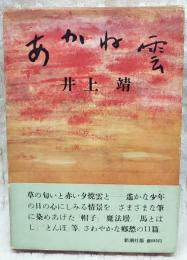 あかね雲
井上 靖
草の匂いと赤い夕焼雲と――遥かな少年
の日の心にしみる情景を、さまざまな筆
に染めあげた「帽子」「魔法壜」「馬とば
し」「とんぼ」等、さわやかな郷愁の11篇
新潮社版